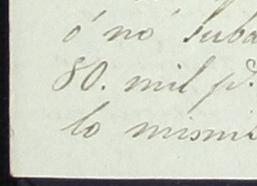 ó no Suba
80. mil p.
lo mism